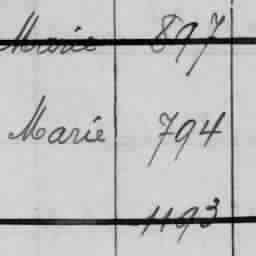 Marie 897
Marie 794
1193